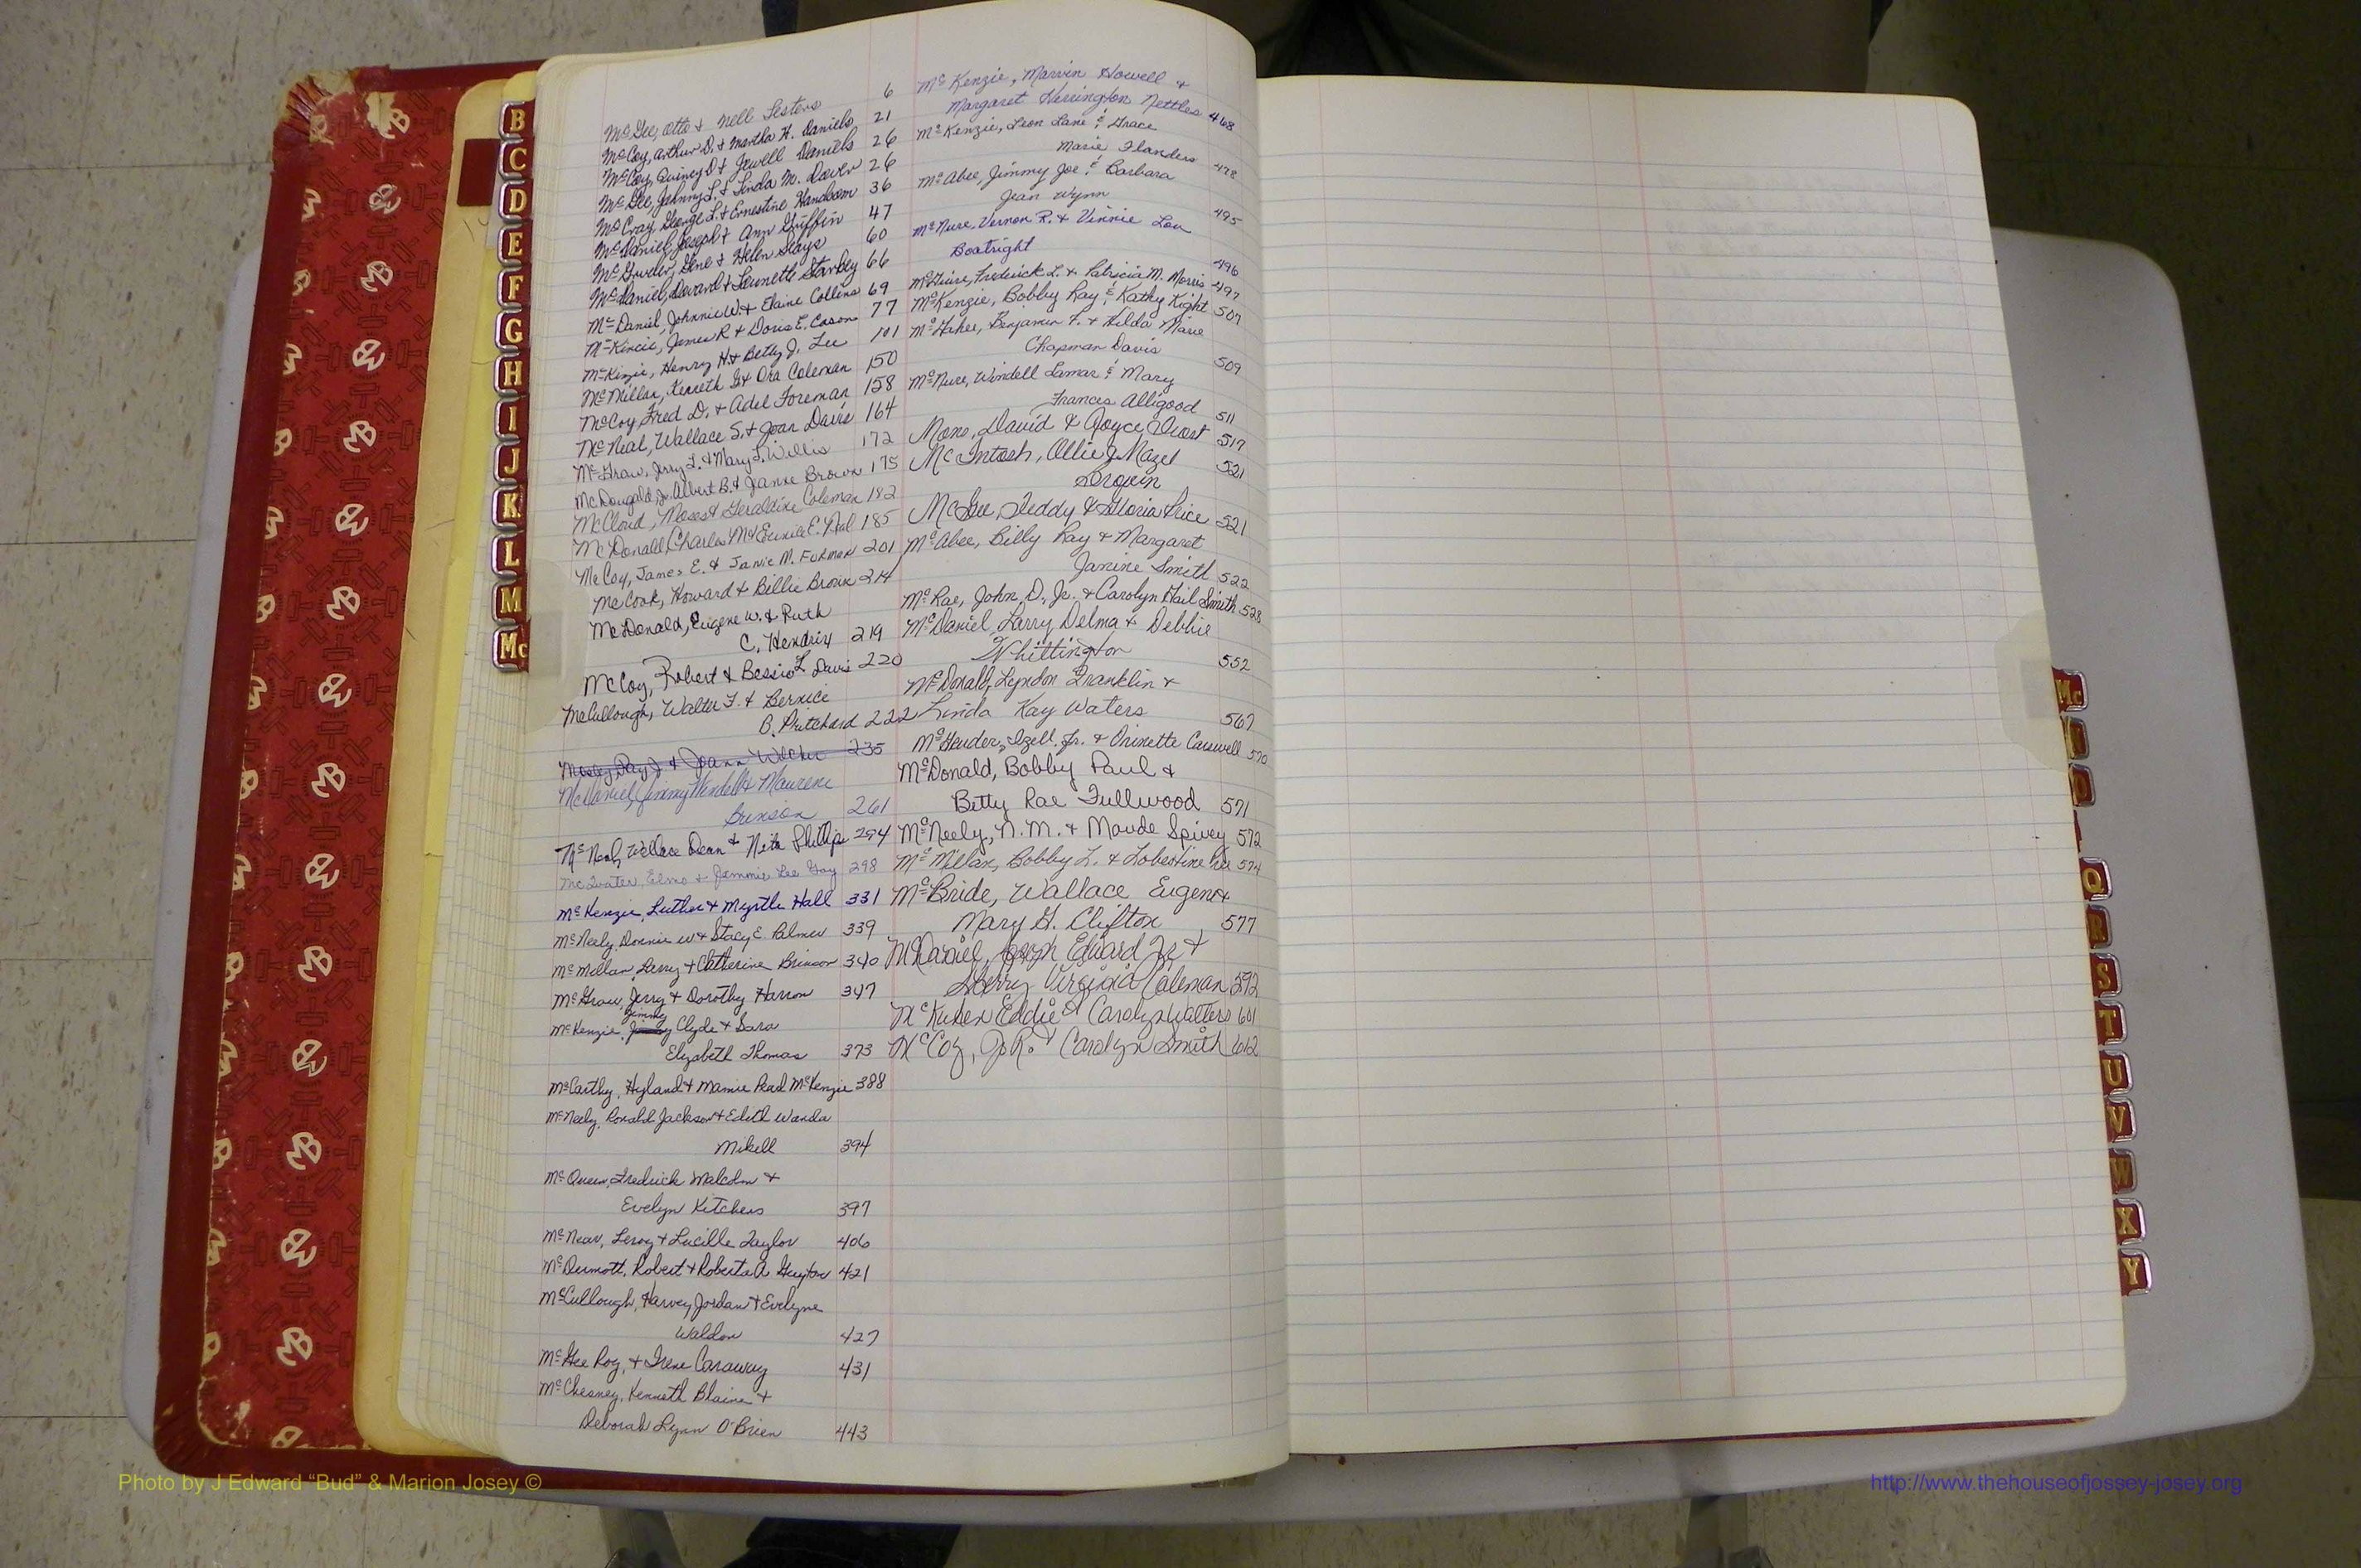 B
C
D
E
F
G
H
I
J
K
L
M
Mc
McGee, Otto & Nell Lesters 6
McCoy, Arthur D. & Martha H. Daniels 21
McCoy, Quincy D & Jewell Daniels 26
McGee, Johnny L. & Linda M. 26
McCray, George L. & Ernestine 36
McDaniel, Joseph & Ann Griffin 47
Gene & Helen Mays 60
McDaniel, Devard & 66
McDaniel, Johnnie W. & Elaine Collins 69
James R & Doris E. Cason 77
McKinzie, Henry H. & Betty J. Lee 101
McMillan, Kenneth G. & Ora Coleman 150
McCoy, Fred D. & Adel Foreman 158
McNeal, Wallace S. & Joan Davis 164
McGraw, Jerry L. & Mary F. Willis 172
McDougald, Jr. Albert B. & Janie Brown 175
McCloud, Moses & Geraldine Coleman 182
McDonald, Charles M & Eunice E. Neal 185
McCoy, James E. & Janie M. 201
McCook, Howard & Billie Brown 214
McDonald, Eugene W. & Ruth
C. Hendrix 219
McCoy, Robert & Bessie L Davis 220
McCullough, Walter F. & Bernice
B. Pritchard 222
Mosley, Ray J. & Joann Wilcher 235
McDaniel, Jimmy Wendell & Maurene
Brinson 261
McNeal, Wallace Dean & Neta Phillips 294
Elmo & Jimmie Lee Gay 298
McKenzie, Luther & Myrtle Hall 331
McNeely, Donnie W & Stacy E. Palmer 339
McMillan, Perry & Catherine Brinson 340
McGraw, Jerry & Dorothy 347
McKenzie, Jimmy Clyde & Sara
Elizabeth Thomas 373
McCarthy, Hyland & Mamie Pearl McKenzie 388
McNeely, Ronald Jackson & Edith Wanda
Mikell 394
McQueen, Fredrick Malcolm &
Evelyn Kitchens 397
McNear, Leroy & Lucille Taylor 406
McDermott, Robert & Roberta A 421
McCullough, Harvey Jordan & Evelyne
Waldon 427
McGee Roy, & Irene Caraway 431
McChesney, Kenneth Blaine &
Deborah Lynn O'Brien 443
McKenzie, Marvin Howell &
Margaret Herrington Nettles 468
McKenzie, Leon Lane & Grace
Marie Flanders 478
McAbee, Jimmy Joe & Barbara
Jean Wynn 495
McNure, Vernon R. & Vinnie Lou
Boatright 496
McGuire, Frederick L. & Patricia M. Morris 497
McKenzie, Bobby Ray & Kathy Kight 507
Benjamin F. & Hilda Marie
Chapman Davis 509
McNure, Windell Lamar & Mary
Frances Alligood 511
David & Joyce 517
McIntosh, Ollie J. Mazel 521
McGee, Teddy & Gloria Price 521
McAbee, Billy Ray & Margaret
Janine Smith 522
McRae, John D., Jr. & Carolyn Gail Smith 528
McDaniel, Larry Delma & Debbie
Whittington 552
McDonald, Lyndon Franklin &
Linda Kay Waters 567
Izell, Jr. & Orinette Carswell 570
McDonald, Bobby Paul &
Betty Rae Fullwood 571
McNeely, N.M. & Maude Spivey 572
McMillan, Bobby L. & Lobestine 574
McBride, Wallace Eugene &
Mary G. Clifton 577
McDaniel, Joseph Edward Jr. &
Sherry Virginia Coleman 592
Eddie & Carolyn Walters 601
McCoy, J.R. & Carolyn Smith 612
Mc
N
O
Q
R
S
T
U
V
W
X
Y
Photo by J Edward “Bud” & Marion Josey ©
http://www.thehouseofjossey-josey.org